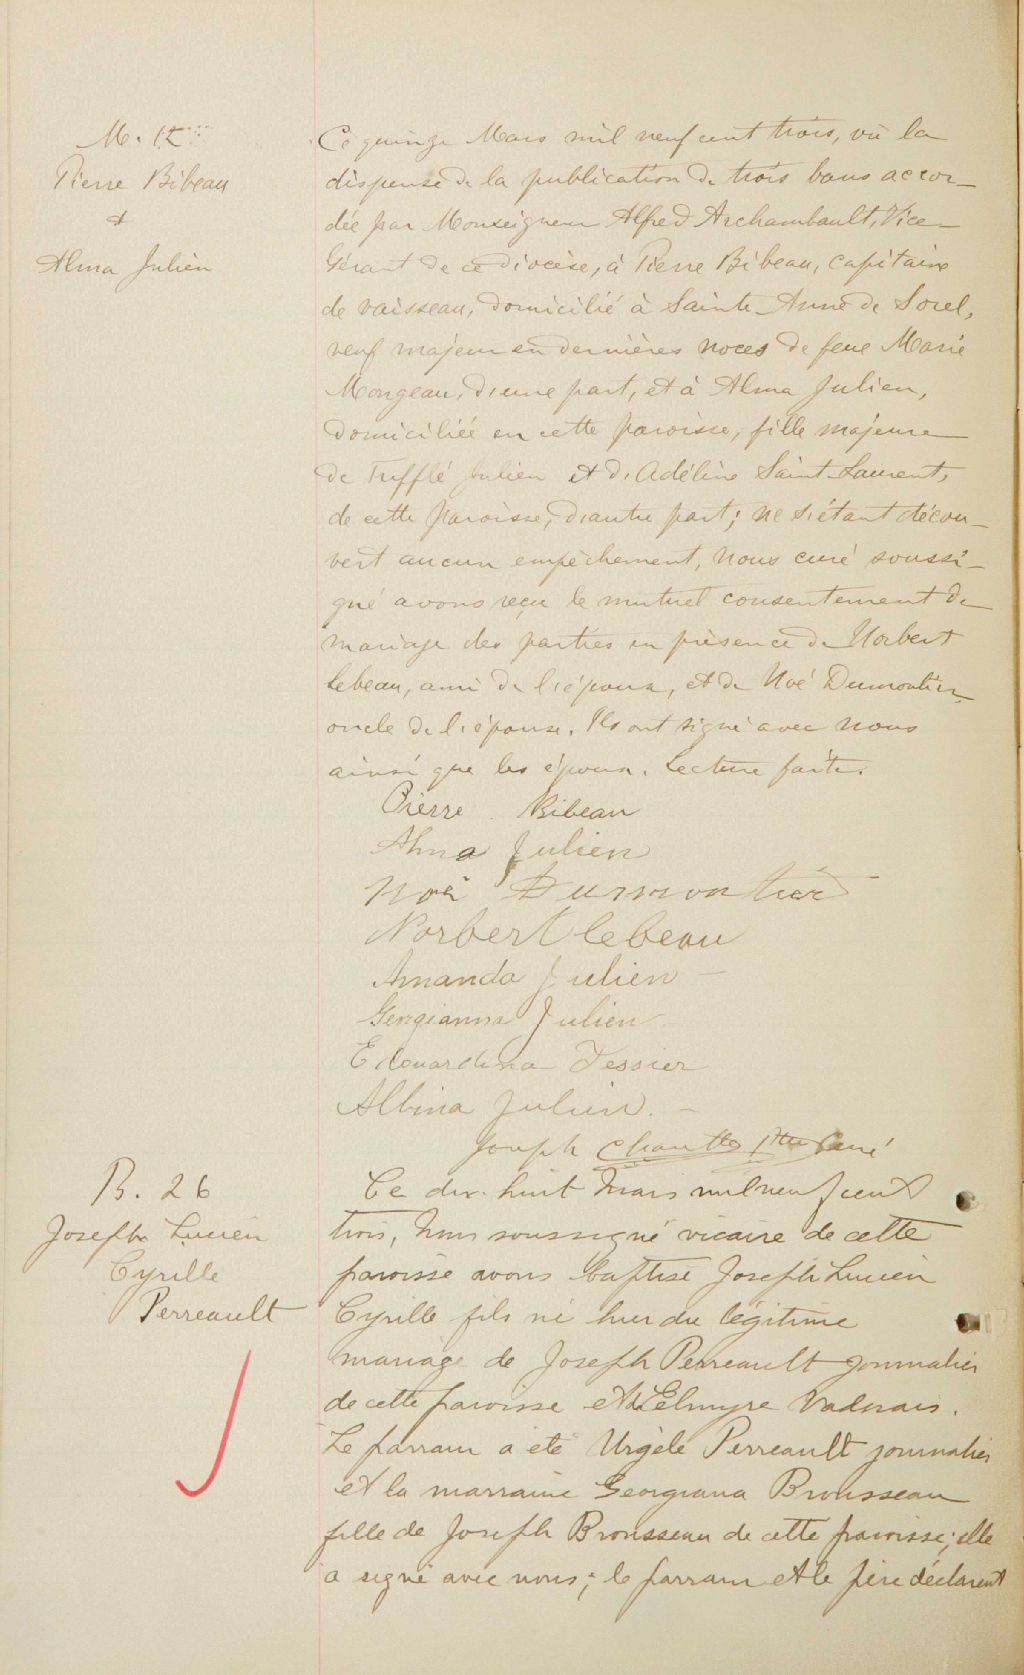 M. 12
Pierre Bibeau
&
Alma Julien
Ce quinze Mars mil neuf cent trois, vû la
dispense de la publication de trois bans accor-
dée par Monseigneur Alfred Archambault, Vice-
Gérant de ce diocèse, à Pierre Bibeau, capitaine
de vaisseau, domicilié à Sainte-Anne de Sorel,
veuf majeur en dernières noces de feue Marie
Mongeau, d'une part, et à Alma Julien,
domiciliée en cette paroisse, fille majeure
de Trefflé Julien et d'Adéline Saint-Laurent,
de cette paroisse, d'autre part; ne s'étant décou-
vert aucun empêchement, nous curé soussi-
gné avons reçu le mutuel consentement de
mariage des parties en présence de Norbert
Lebeau, ami de l'époux, et de Noé Dumontier,
oncle de l'épouse. Ils ont signé avec nous
ainsi que les époux. Lecture faite.
Pierre Bibeau
Alma Julien
Noé Dumontier
Norbert lebeau
Amanda Julien
Georgianna Julien
Edouardina Tessier
Albina Julien.
Joseph Ptre Curé
B. 26
Joseph Lucien
Cyrille
Perreault
Ce dix-huit Mars mil neuf cent
trois, Nous soussigné vicaire de cette
paroisse avons baptisé Joseph Lucien
Cyrille fils né hier du légitime
mariage de Joseph Perreault journalier
de cette paroisse et de Elmyre Vadnais.
Le parrain a été Urgèle Perreault journalier
et la marraine Georgiana Brousseau
fille de Joseph Brousseau de cette paroisse; elle
a signé avec nous; le parrain et le père déclarent